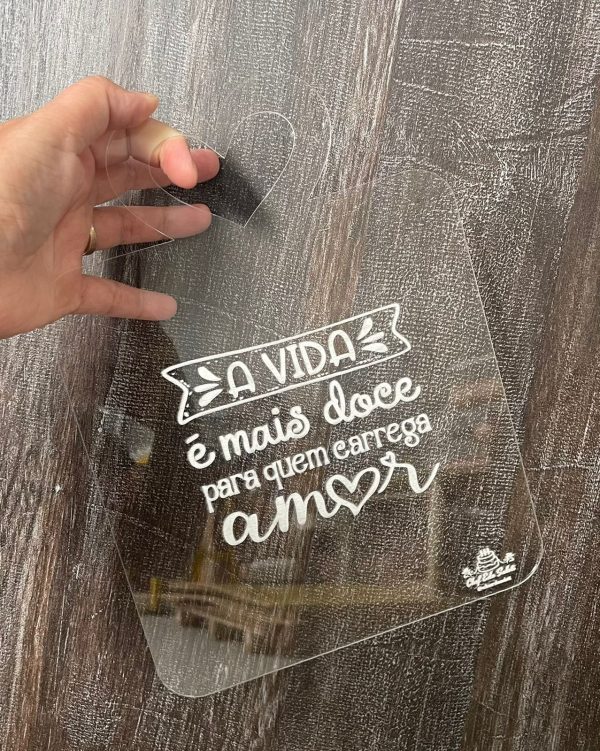 A VIDA
é mais doce
para quem carrega
amor